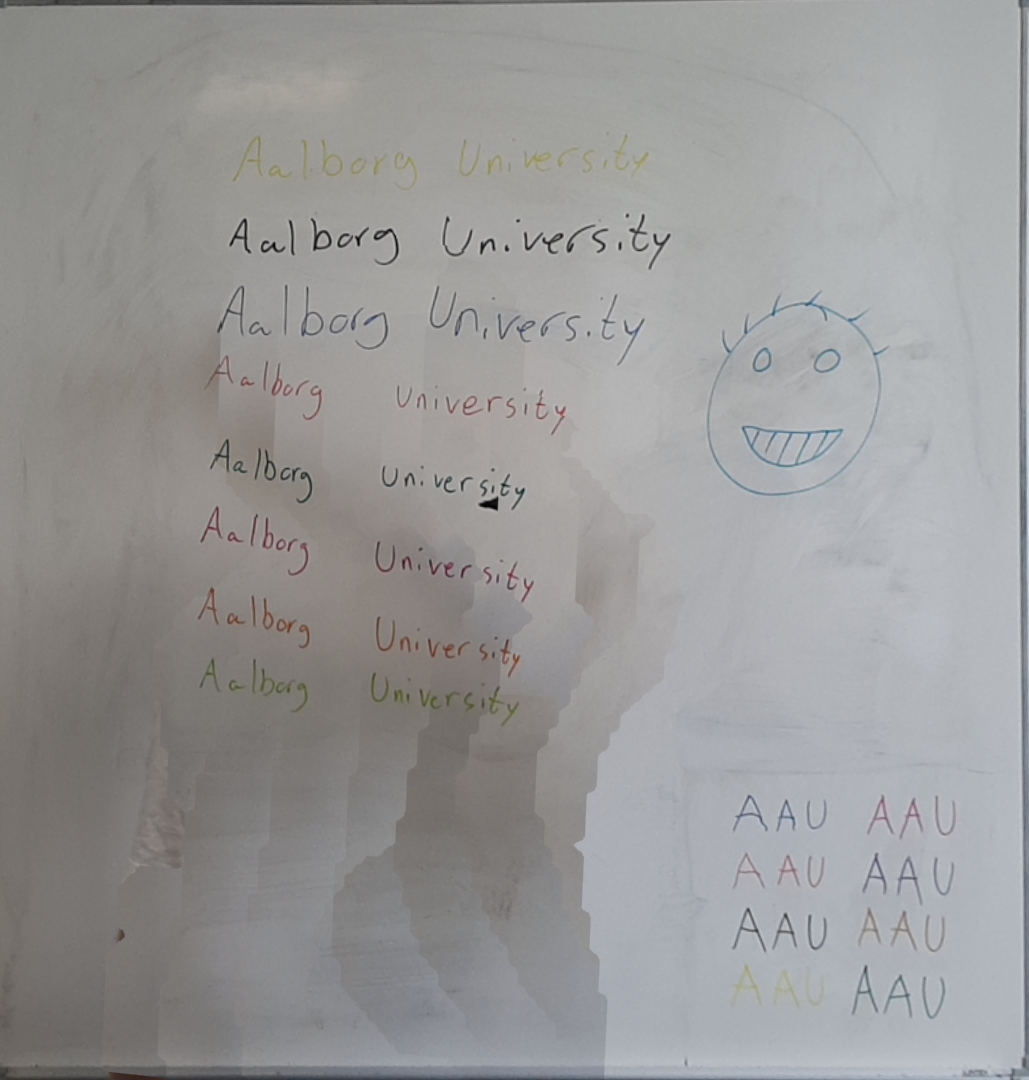 Aalborg University
Aalborg University
Aalborg University
Aalborg University
Aalborg University
Aalborg University
Aalborg University
Aalborg University
AAU AAU
AAU AAU
AAU AAU
AAU AAU